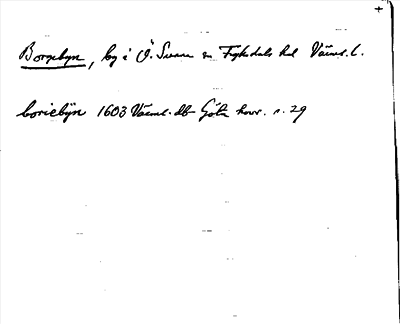 +
Borgebyn, by i Ö. Sunne sn Fryksdals hd Värml. l.
boriebÿn 1603 Värml. db Göta hovr. s. 29